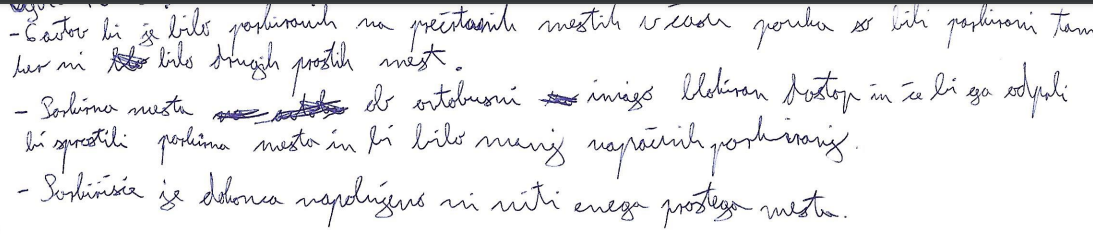 - 6 avtov ki je bilo parkiranih na prečrtanih mestih v času pouka so bili parkirani tam
ker ni bilo drugih prostih mest.
- Parkirna mesta ob avtobusni imajo blokiran dostop in če bi ga odprli
bi sprostili parkirna mesta in bi bilo manj napačnih parkiranj.
- Parkirišče je dokonca napolnjeno ni niti enega prostega mesta.